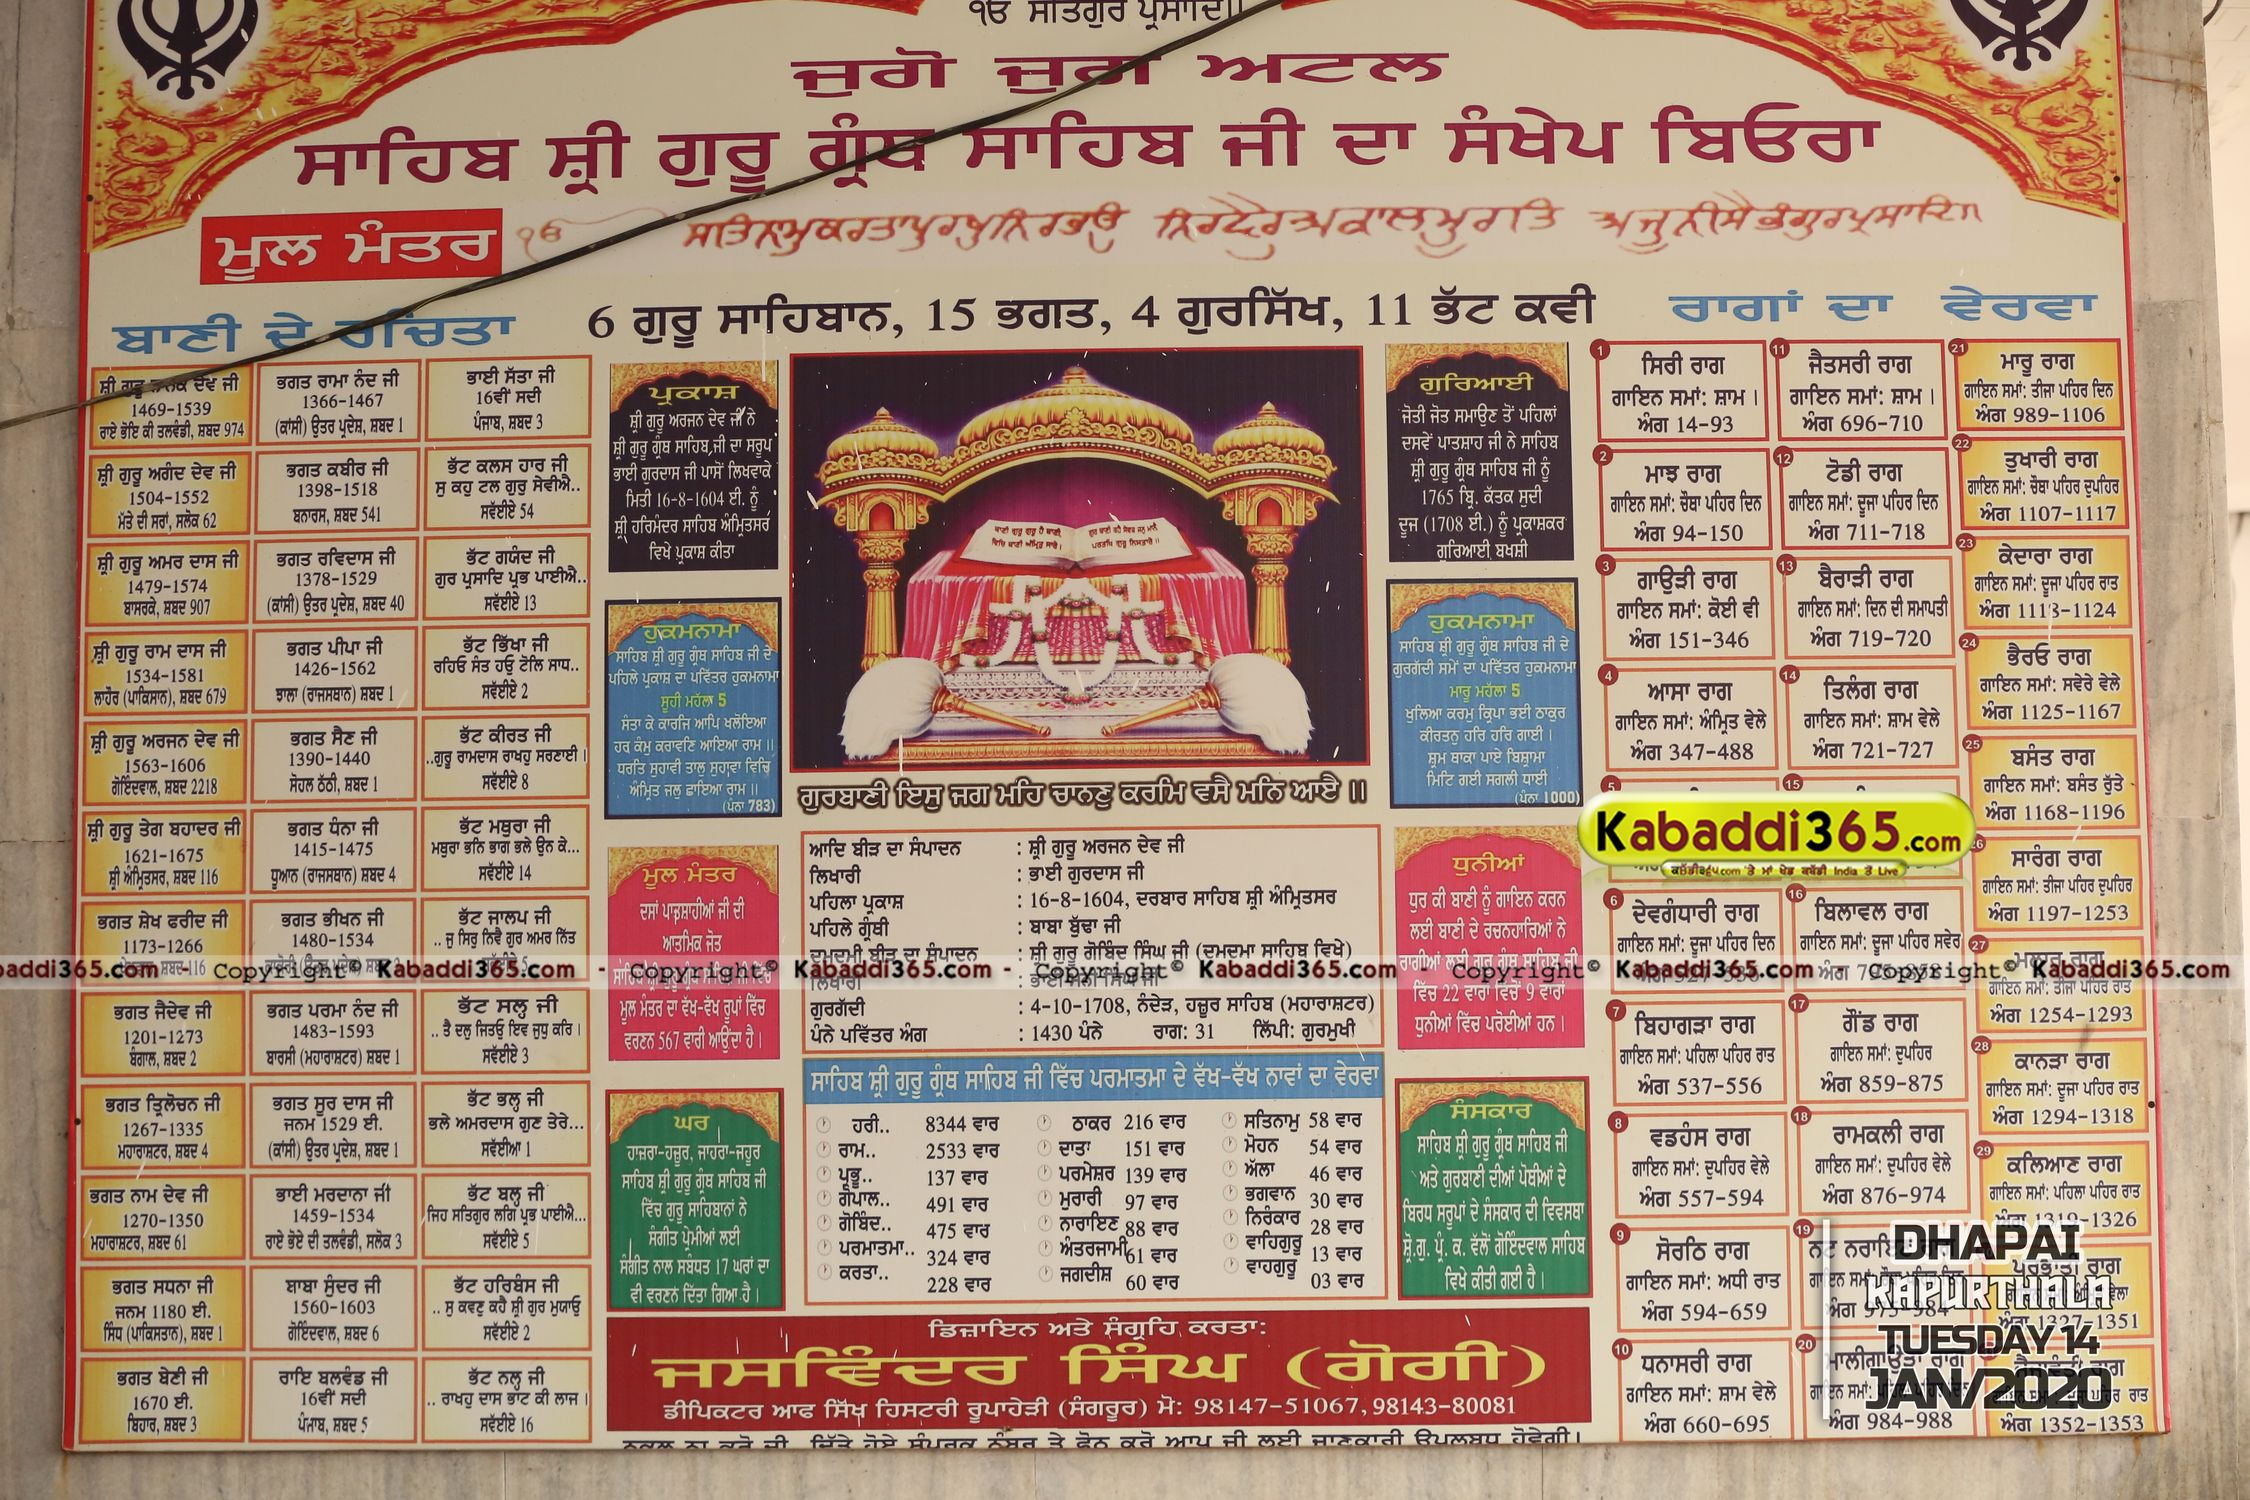 ੴ ਸਤਿਗੁਰ ਪ੍ਰਸਾਦਿ॥
ਜੁਗੋ ਜੁਗ ਅਟਲ
ਸਾਹਿਬ ਸ਼੍ਰੀ ਗੁਰੂ ਗ੍ਰੰਥ ਸਾਹਿਬ ਜੀ ਦਾ ਸੰਖੇਪ ਬਿਓਰਾ
ਮੂਲ ਮੰਤਰ
ੴ ਸਤਿਨਾਮੁ ਕਰਤਾ ਪੁਰਖੁ ਨਿਰਭਉ ਨਿਰਵੈਰੁ ਅਕਾਲ ਮੂਰਤਿ ਅਜੂਨੀ ਸੈਭੰ ਗੁਰਪ੍ਰਸਾਦਿ
ਬਾਣੀ ਦੇ ਰਚਿਤਾ
6 ਗੁਰੂ ਸਾਹਿਬਾਨ, 15 ਭਗਤ, 4 ਗੁਰਸਿੱਖ, 11 ਭੱਟ ਕਵੀ
ਰਾਗਾਂ ਦਾ ਵੇਰਵਾ
ਸ਼੍ਰੀ ਗੁਰੂ ਨਾਨਕ ਦੇਵ ਜੀ
1469-1539
ਰਾਏ ਭੋਇ ਕੀ ਤਲਵੰਡੀ, ਸ਼ਬਦ 974
ਸ਼੍ਰੀ ਗੁਰੂ ਅਗੰਦ ਦੇਵ ਜੀ
1504-1552
ਮੱਤੇ ਦੀ ਸਰਾਂ, ਸਲੋਕ 62
ਸ਼੍ਰੀ ਗੁਰੂ ਅਮਰ ਦਾਸ ਜੀ
1479-1574
ਬਾਸਰਕੇ, ਸ਼ਬਦ 907
ਸ਼੍ਰੀ ਗੁਰੂ ਰਾਮ ਦਾਸ ਜੀ
1534-1581
ਲਾਹੌਰ (ਪਾਕਿਸਾਨ), ਸ਼ਬਦ 679
ਸ਼੍ਰੀ ਗੁਰੂ ਅਰਜਨ ਦੇਵ ਜੀ
1563-1606
ਗੋਇੰਦਵਾਲ, ਸ਼ਬਦ 2218
ਸ਼੍ਰੀ ਗੁਰੂ ਤੇਗ ਬਹਾਦਰ ਜੀ
1621-1675
ਸ਼੍ਰੀ ਅੰਮ੍ਰਿਤਸਰ, ਸ਼ਬਦ 116
ਭਗਤ ਸ਼ੇਖ ਫਰੀਦ ਜੀ
1173-1266
ਸ਼ਬਦ-116
ਭਗਤ ਜੈਦੇਵ ਜੀ
1201-1273
ਬੰਗਾਲ, ਸ਼ਬਦ 2
ਭਗਤ ਤ੍ਰਿਲੋਚਨ ਜੀ
1267-1335
ਮਹਾਰਾਸ਼ਟਰ, ਸ਼ਬਦ 4
ਭਗਤ ਨਾਮ ਦੇਵ ਜੀ
1270-1350
ਮਹਾਰਾਸ਼ਟਰ, ਸ਼ਬਦ 61
ਭਗਤ ਸਧਨਾ ਜੀ
ਜਨਮ 1180 ਈ.
ਸਿੰਧ (ਪਾਕਿਸਤਾਨ), ਸ਼ਬਦ 1
ਭਗਤ ਬੇਣੀ ਜੀ
1670 ਈ.
ਬਿਹਾਰ, ਸ਼ਬਦ 3
ਭਗਤ ਰਾਮਾ ਨੰਦ ਜੀ
1366-1467
(ਕਾਂਸੀ) ਉਤਰ ਪ੍ਰਦੇਸ਼, ਸ਼ਬਦ 1
ਭਗਤ ਕਬੀਰ ਜੀ
1398-1518
ਬਨਾਰਸ, ਸ਼ਬਦ 541
ਭਗਤ ਰਵਿਦਾਸ ਜੀ
1378-1529
(ਕਾਂਸੀ) ਉਤਰ ਪ੍ਰਦੇਸ਼, ਸ਼ਬਦ 40
ਭਗਤ ਪੀਪਾ ਜੀ
1426-1562
ਝਾਲਾ (ਰਾਜਸਥਾਨ) ਸ਼ਬਦ 1
ਭਗਤ ਸੈਣ ਜੀ
1390-1440
ਸੋਹਲ ਠੱਠੀ, ਸ਼ਬਦ 1
ਭਗਤ ਧੰਨਾ ਜੀ
1415-1475
ਧੂਆਨ (ਰਾਜਸਥਾਨ) ਸ਼ਬਦ 4
ਭਗਤ ਭੀਖਨ ਜੀ
1480-1534
ਭਗਤ ਪਰਮਾ ਨੰਦ ਜੀ
1483-1593
ਬਾਰਸੀ (ਮਹਾਰਾਸ਼ਟਰ) ਸ਼ਬਦ 1
ਭਗਤ ਸੂਰ ਦਾਸ ਜੀ
ਜਨਮ 1529 ਈ.
(ਕਾਂਸੀ) ਉਤਰ ਪ੍ਰਦੇਸ਼, ਸ਼ਬਦ 1
ਭਾਈ ਮਰਦਾਨਾ ਜੀ
1459-1534
ਰਾਏ ਭੋਏ ਦੀ ਤਲਵੰਡੀ, ਸਲੋਕ 3
ਬਾਬਾ ਸੁੰਦਰ ਜੀ
1560-1603
ਗੋਇੰਦਵਾਲ, ਸ਼ਬਦ 6
ਰਾਇ ਬਲਵੰਡ ਜੀ
16ਵੀਂ ਸਦੀ
ਪੰਜਾਬ, ਸ਼ਬਦ 5
ਭਾਈ ਸੱਤਾ ਜੀ
16ਵੀਂ ਸਦੀ
ਪੰਜਾਬ, ਸ਼ਬਦ 3
ਭੱਟ ਕਲਸ ਹਾਰ ਜੀ
ਸੁ ਕਹੁ ਟਲ ਗੁਰੁ ਸੇਵੀਐ..
ਸਵੱਈਏ 54
ਭੱਟ ਗਯੰਦ ਜੀ
ਗੁਰ ਪ੍ਰਸਾਦਿ ਪ੍ਰਭ ਪਾਈਐ..
ਸਵੱਈਏ 13
ਭੱਟ ਭਿੱਖਾ ਜੀ
ਰਹਿਓ ਸੰਤ ਹਉ ਟੋਲਿ ਸਾਧ..
ਸਵੱਈਏ 2
ਭੱਟ ਕੀਰਤ ਜੀ
..ਗੁਰੂ ਰਾਮਦਾਸ ਰਾਖਹੁ ਸਰਣਾਈ।
ਸਵੱਈਏ 8
ਭੱਟ ਮਥੁਰਾ ਜੀ
ਮਥੁਰਾ ਭਨਿ ਭਾਗ ਭਲੇ ਉਨ ਕੇ...
ਸਵੱਈਏ 14
ਭੱਟ ਜਾਲਪ ਜੀ
.. ਜੁ ਸਿਰੁ ਨਿਵੈ ਗੁਰ ਅਮਰ ਨਿੱਤ
ਸਵੱਈਏ 5
ਭੱਟ ਸਲ੍ਹ ਜੀ
.. ਤੈ ਦਲੁ ਜਿਤਓੁ ਇਵ ਜੁਧੁ ਕਰਿ।
ਸਵੱਈਏ 3
ਭੱਟ ਭਲ੍ਹ ਜੀ
ਭਲੇ ਅਮਰਦਾਸ ਗੁਣ ਤੇਰੇ...
ਸਵੱਈਆ 1
ਭੱਟ ਬਲ੍ਹ ਜੀ
ਜਿਹ ਸਤਿਗੁਰ ਲਗਿ ਪ੍ਰਭ ਪਾਈਐ...
ਸਵੱਈਏ 5
ਭੱਟ ਹਰਿਬੰਸ ਜੀ
.. ਸੁ ਕਵਣੁ ਕਹੈ ਸ਼੍ਰੀ ਗੁਰ ਮੁਯਾਓੁ
ਸਵੱਈਏ 2
ਭੱਟ ਨਲ੍ਹ ਜੀ
.. ਰਾਖਹੁ ਦਾਸ ਭਾਟ ਕੀ ਲਾਜ।
ਸਵੱਈਏ 16
ਪ੍ਰਕਾਸ਼
ਸ਼੍ਰੀ ਗੁਰੂ ਅਰਜਨ ਦੇਵ ਜੀ ਨੇ
ਸ਼੍ਰੀ ਗੁਰੂ ਗ੍ਰੰਥ ਸਾਹਿਬ ਜੀ ਦਾ ਸਰੂਪ
ਭਾਈ ਗੁਰਦਾਸ ਜੀ ਪਾਸੋਂ ਲਿਖਵਾਕੇ
ਮਿਤੀ 16-8-1604 ਈ. ਨੂੰ
ਸ਼੍ਰੀ ਹਰਿਮੰਦਰ ਸਾਹਿਬ ਅੰਮ੍ਰਿਤਸਰ
ਵਿਖੇ ਪ੍ਰਕਾਸ਼ ਕੀਤਾ
ਹੁਕਮਨਾਮਾ
ਸਾਹਿਬ ਸ਼੍ਰੀ ਗੁਰੂ ਗ੍ਰੰਥ ਸਾਹਿਬ ਜੀ ਦੇ
ਪਹਿਲੇ ਪ੍ਰਕਾਸ਼ ਦਾ ਪਵਿੱਤਰ ਹੁਕਮਨਾਮਾ
ਸੂਹੀ ਮਹੱਲਾ 5
ਸੰਤਾ ਕੇ ਕਾਰਜਿ ਆਪਿ ਖਲੋਇਆ
ਹਰ ਕੰਮੁ ਕਰਾਵਣਿ ਆਇਆ ਰਾਮ॥
ਧਰਤਿ ਸੁਹਾਵੀ ਤਾਲੁ ਸੁਹਾਵਾ ਵਿਚਿ
ਅੰਮ੍ਰਿਤ ਜਲੁ ਛਾਇਆ ਰਾਮ॥
(ਪੰਨਾ 783)
ਮੂਲ ਮੰਤਰ
ਦਸਾਂ ਪਾਤਸ਼ਾਹੀਆਂ ਜੀ ਦੀ
ਆਤਮਿਕ ਜੋਤ
ਮੂਲ ਮੰਤਰ ਦਾ ਵੱਖ-ਵੱਖ ਰੂਪਾਂ ਵਿੱਚ
ਵਰਣਨ 567 ਵਾਰੀ ਆਉਂਦਾ ਹੈ।
ਘਰ
ਹਾਜ਼ਰਾ-ਹਜ਼ੂਰ, ਜਾਹਰਾ-ਜਹੂਰ
ਸਾਹਿਬ ਸ਼੍ਰੀ ਗੁਰੂ ਗ੍ਰੰਥ ਸਾਹਿਬ ਜੀ
ਵਿੱਚ ਗੁਰੂ ਸਾਹਿਬਾਨਾਂ ਨੇ
ਸੰਗੀਤ ਪ੍ਰੇਮੀਆਂ ਲਈ
ਸੰਗੀਤ ਨਾਲ ਸਬੰਧਤ 17 ਘਰਾਂ ਦਾ
ਵੀ ਵਰਣਨ ਦਿੱਤਾ ਗਿਆ ਹੈ।
ਗੁਰਬਾਣੀ ਇਸੁ ਜਗ ਮਹਿ ਚਾਨਣੁ ਕਰਮਿ ਵਸੈ ਮਨਿ ਆਏ॥
ਆਦਿ ਬੀੜ ਦਾ ਸੰਪਾਦਨ : ਸ਼੍ਰੀ ਗੁਰੂ ਅਰਜਨ ਦੇਵ ਜੀ
ਲਿਖਾਰੀ : ਭਾਈ ਗੁਰਦਾਸ ਜੀ
ਪਹਿਲਾ ਪ੍ਰਕਾਸ਼ : 16-8-1604, ਦਰਬਾਰ ਸਾਹਿਬ ਸ਼੍ਰੀ ਅੰਮ੍ਰਿਤਸਰ
ਪਹਿਲੇ ਗ੍ਰੰਥੀ : ਬਾਬਾ ਬੁੱਢਾ ਜੀ
ਦਮਦਮੀ ਬੀੜ ਦਾ ਸੰਪਾਦਨ : ਸ਼੍ਰੀ ਗੁਰੂ ਗੋਬਿੰਦ ਸਿੰਘ ਜੀ (ਦਮਦਮਾ ਸਾਹਿਬ ਵਿਖੇ)
ਲਿਖਾਰੀ : ਭਾਈ ਮਨੀ ਸਿੰਘ ਜੀ
ਗੁਰਗੱਦੀ : 4-10-1708, ਨੰਦੇੜ, ਹਜ਼ੂਰ ਸਾਹਿਬ (ਮਹਾਰਾਸ਼ਟਰ)
ਪੰਨੇ ਪਵਿੱਤਰ ਅੰਗ : 1430 ਪੰਨੇ ਰਾਗ: 31 ਲਿੱਪੀ: ਗੁਰਮੁਖੀ
ਸਾਹਿਬ ਸ਼੍ਰੀ ਗੁਰੂ ਗ੍ਰੰਥ ਸਾਹਿਬ ਜੀ ਵਿੱਚ ਪਰਮਾਤਮਾ ਦੇ ਵੱਖ-ਵੱਖ ਨਾਵਾਂ ਦਾ ਵੇਰਵਾ
ਹਰੀ.. 8344 ਵਾਰ
ਰਾਮ.. 2533 ਵਾਰ
ਪ੍ਰਭੂ.. 137 ਵਾਰ
ਗੋਪਾਲ.. 491 ਵਾਰ
ਗੋਬਿੰਦ.. 475 ਵਾਰ
ਪਰਮਾਤਮਾ.. 324 ਵਾਰ
ਕਰਤਾ.. 228 ਵਾਰ
ਠਾਕਰ 216 ਵਾਰ
ਦਾਤਾ 151 ਵਾਰ
ਪਰਮੇਸ਼ਰ 139 ਵਾਰ
ਮੁਰਾਰੀ 97 ਵਾਰ
ਨਾਰਾਇਣ 88 ਵਾਰ
ਅੰਤਰਜਾਮੀ 61 ਵਾਰ
ਜਗਦੀਸ਼ 60 ਵਾਰ
ਸਤਿਨਾਮੁ 58 ਵਾਰ
ਮੋਹਨ 54 ਵਾਰ
ਅੱਲਾ 46 ਵਾਰ
ਭਗਵਾਨ 30 ਵਾਰ
ਨਿਰੰਕਾਰ 28 ਵਾਰ
ਵਾਹਿਗੁਰੂ 13 ਵਾਰ
ਵਾਹਗੁਰੂ 03 ਵਾਰ
ਗੁਰਿਆਈ
ਜੋਤੀ ਜੋਤ ਸਮਾਉਣ ਤੋਂ ਪਹਿਲਾਂ
ਦਸਵੇਂ ਪਾਤਸ਼ਾਹ ਜੀ ਨੇ ਸਾਹਿਬ
ਸ਼੍ਰੀ ਗੁਰੂ ਗ੍ਰੰਥ ਸਾਹਿਬ ਜੀ ਨੂੰ
1765 ਬ੍ਰਿ. ਕੱਤਕ ਸੁਦੀ
ਦੂਜ (1708 ਈ.) ਨੂੰ ਪ੍ਰਕਾਸ਼ਕਰ
ਗੁਰਿਆਈ ਬਖਸ਼ੀ
ਹੁਕਮਨਾਮਾ
ਸਾਹਿਬ ਸ਼੍ਰੀ ਗੁਰੂ ਗ੍ਰੰਥ ਸਾਹਿਬ ਜੀ ਦੇ
ਗੁਰਗੱਦੀ ਸਮੇਂ ਦਾ ਪਵਿੱਤਰ ਹੁਕਮਨਾਮਾ
ਮਾਰੂ ਮਹੱਲਾ 5
ਖੁਲਿਆ ਕਰਮੁ ਕ੍ਰਿਪਾ ਭਈ ਠਾਕੁਰ
ਕੀਰਤਨੁ ਹਰਿ ਹਰਿ ਗਾਈ।
ਸ਼੍ਰਮੁ ਥਾਕਾ ਪਾਏ ਬਿਸ਼੍ਰਾਮਾ
ਮਿਟਿ ਗਈ ਸਗਲੀ ਧਾਈ
(ਪੰਨਾ 1000)
ਧੁਨੀਆਂ
ਧੁਰ ਕੀ ਬਾਣੀ ਨੂੰ ਗਾਇਨ ਕਰਨ
ਲਈ ਬਾਣੀ ਦੇ ਰਚਨਹਾਰਿਆਂ ਨੇ
ਰਾਗੀਆਂ ਲਈ ਗੁਰੂ ਗ੍ਰੰਥ ਸਾਹਿਬ ਜੀ
ਵਿੱਚ 22 ਵਾਰਾਂ ਵਿਚੋਂ 9 ਵਾਰਾਂ
ਧੁਨੀਆਂ ਵਿੱਚ ਪਰੋਈਆਂ ਹਨ।
ਸੰਸਕਾਰ
ਸਾਹਿਬ ਸ਼੍ਰੀ ਗੁਰੂ ਗ੍ਰੰਥ ਸਾਹਿਬ ਜੀ
ਅਤੇ ਗੁਰਬਾਣੀ ਦੀਆਂ ਪੋਥੀਆਂ ਦੇ
ਬਿਰਧ ਸਰੂਪਾਂ ਦੇ ਸੰਸਕਾਰ ਦੀ ਵਿਵਸਥਾ
ਸ਼੍ਰੋ.ਗੁ. ਪ੍ਰੰ. ਕ. ਵੱਲੋਂ ਗੋਇੰਦਵਾਲ ਸਾਹਿਬ
ਵਿਖੇ ਕੀਤੀ ਗਈ ਹੈ।
1 ਸਿਰੀ ਰਾਗ
ਗਾਇਨ ਸਮਾਂ: ਸ਼ਾਮ।
ਅੰਗ 14-93
2 ਮਾਝ ਰਾਗ
ਗਾਇਨ ਸਮਾਂ: ਚੌਥਾ ਪਹਿਰ ਦਿਨ
ਅੰਗ 94-150
3 ਗਾਉੜੀ ਰਾਗ
ਗਾਇਨ ਸਮਾਂ: ਕੋਈ ਵੀ
ਅੰਗ 151-346
4 ਆਸਾ ਰਾਗ
ਗਾਇਨ ਸਮਾਂ: ਅੰਮ੍ਰਿਤ ਵੇਲੇ
ਅੰਗ 347-488
5
6 ਦੇਵਗੰਧਾਰੀ ਰਾਗ
ਗਾਇਨ ਸਮਾਂ: ਦੂਜਾ ਪਹਿਰ ਦਿਨ
7 ਬਿਹਾਗੜਾ ਰਾਗ
ਗਾਇਨ ਸਮਾਂ: ਪਹਿਲਾ ਪਹਿਰ ਰਾਤ
ਅੰਗ 537-556
8 ਵਡਹੰਸ ਰਾਗ
ਗਾਇਨ ਸਮਾਂ: ਦੁਪਹਿਰ ਵੇਲੇ
ਅੰਗ 557-594
9 ਸੋਰਠਿ ਰਾਗ
ਗਾਇਨ ਸਮਾਂ: ਅਧੀ ਰਾਤ
ਅੰਗ 594-659
10 ਧਨਾਸਰੀ ਰਾਗ
ਗਾਇਨ ਸਮਾਂ: ਸ਼ਾਮ ਵੇਲੇ
ਅੰਗ 660-695
11 ਜੈਤਸਰੀ ਰਾਗ
ਗਾਇਨ ਸਮਾਂ: ਸ਼ਾਮ।
ਅੰਗ 696-710
12 ਟੋਡੀ ਰਾਗ
ਗਾਇਨ ਸਮਾਂ: ਦੂਜਾ ਪਹਿਰ ਦਿਨ
ਅੰਗ 711-718
13 ਬੈਰਾੜੀ ਰਾਗ
ਗਾਇਨ ਸਮਾਂ: ਦਿਨ ਦੀ ਸਮਾਪਤੀ
ਅੰਗ 719-720
14 ਤਿਲੰਗ ਰਾਗ
ਗਾਇਨ ਸਮਾਂ: ਸ਼ਾਮ ਵੇਲੇ
ਅੰਗ 721-727
15
16 ਬਿਲਾਵਲ ਰਾਗ
ਗਾਇਨ ਸਮਾਂ: ਦੂਜਾ ਪਹਿਰ ਸਵੇਰ
17 ਗੌਂਡ ਰਾਗ
ਗਾਇਨ ਸਮਾਂ: ਦੁਪਹਿਰ
ਅੰਗ 859-875
18 ਰਾਮਕਲੀ ਰਾਗ
ਗਾਇਨ ਸਮਾਂ: ਦੁਪਹਿਰ ਵੇਲੇ
ਅੰਗ 876-974
19 ਨਟ
20 ਮਾਲੀਗਾਉੜਾ ਰਾਗ
ਅੰਗ 984-988
21 ਮਾਰੂ ਰਾਗ
ਗਾਇਨ ਸਮਾਂ: ਤੀਜਾ ਪਹਿਰ ਦਿਨ
ਅੰਗ 989-1106
22 ਤੁਖਾਰੀ ਰਾਗ
ਗਾਇਨ ਸਮਾਂ: ਚੌਥਾ ਪਹਿਰ ਦੁਪਹਿਰ
ਅੰਗ 1107-1117
23 ਕੇਦਾਰਾ ਰਾਗ
ਗਾਇਨ ਸਮਾਂ: ਦੂਜਾ ਪਹਿਰ ਰਾਤ
ਅੰਗ 1118-1124
24 ਭੈਰਓ ਰਾਗ
ਗਾਇਨ ਸਮਾਂ: ਸਵੇਰੇ ਵੇਲੇ
ਅੰਗ 1125-1167
25 ਬਸੰਤ ਰਾਗ
ਗਾਇਨ ਸਮਾਂ: ਬਸੰਤ ਰੁੱਤੇ
ਅੰਗ 1168-1196
26 ਸਾਰੰਗ ਰਾਗ
ਗਾਇਨ ਸਮਾਂ: ਤੀਜਾ ਪਹਿਰ ਦੁਪਹਿਰ
ਅੰਗ 1197-1253
27 ਮਲਾਰ ਰਾਗ
ਗਾਇਨ ਸਮਾਂ: ਤੀਜਾ ਪਹਿਰ ਰਾਤ
ਅੰਗ 1254-1293
28 ਕਾਨੜਾ ਰਾਗ
ਗਾਇਨ ਸਮਾਂ: ਦੂਜਾ ਪਹਿਰ ਰਾਤ
ਅੰਗ 1294-1318
29 ਕਲਿਆਣ ਰਾਗ
ਗਾਇਨ ਸਮਾਂ: ਪਹਿਲਾ ਪਹਿਰ ਰਾਤ
ਅੰਗ 1319-1326
ਪਰਭਾਤੀ ਰਾਗ
ਅੰਗ 1327-1351
ਅੰਗ 1352-1353
ਡਿਜ਼ਾਇਨ ਅਤੇ ਸੰਗ੍ਰਹਿ ਕਰਤਾ:
ਜਸਵਿੰਦਰ ਸਿੰਘ (ਗੋਗੀ)
ਡੀਪਿਕਟਰ ਆਫ ਸਿੱਖ ਹਿਸਟਰੀ ਰੂਪਾਹੇੜੀ (ਸੰਗਰੂਰ) ਮੋ: 98147-51067, 98143-80081
ਨਕਲ ਨਾ ਕਰੋ ਜੀ, ਦਿੱਤੇ ਹੋਏ ਸੰਪਰਕ ਨੰਬਰ ਤੇ ਫੋਨ ਕਰੋ ਆਪ ਜੀ ਲਈ ਜਾਣਕਾਰੀ ਉਪਲਬਧ ਹੋਵੇਗੀ।
Kabaddi365.com
baddi365.com - Copyright© Kabaddi365.com - Copyright© Kabaddi365.com - Copyright© Kabaddi365.com - Copyright© Kabaddi365.com - Copyright© Kabaddi365.com
DHAPAI
KAPURTHALA
TUESDAY 14
JAN/2020